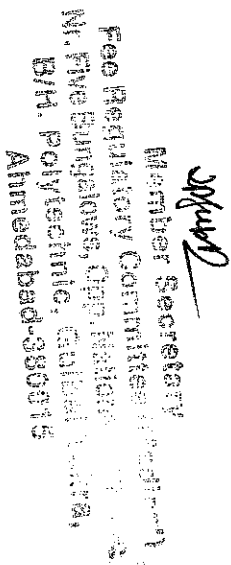 Member Secretary
Fee Regulatory Committee
Nr. Five Bungalows, Opp.
B/H. Polytechnic, Gulbai
Ahmedabad-380015